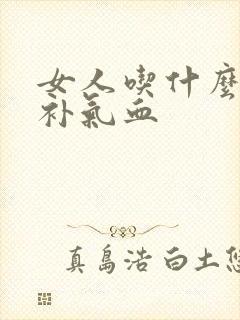 女人喫什麼
补氣血
真島浩 白土悠